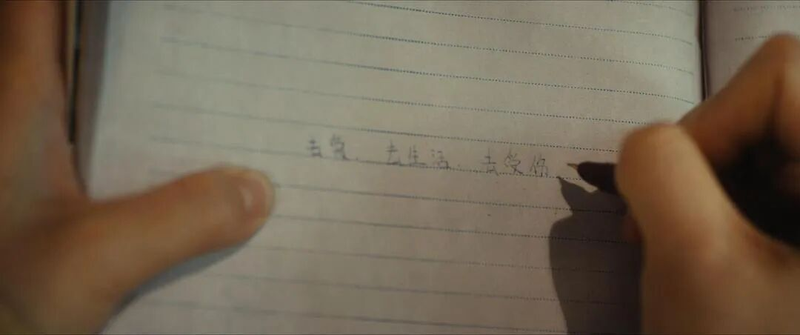 去爱、去生活、去受伤